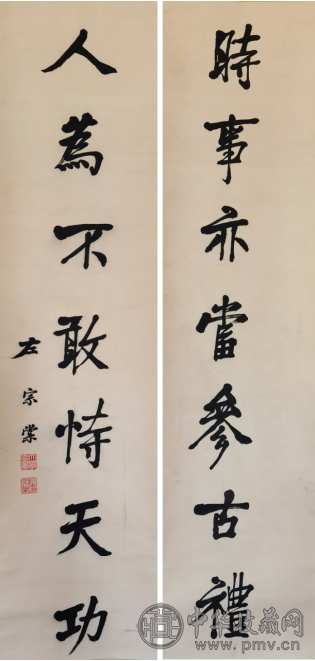 時事亦當參古禮
人為不敢恃天功
左宗棠
中华收藏网
www.pmv.cn